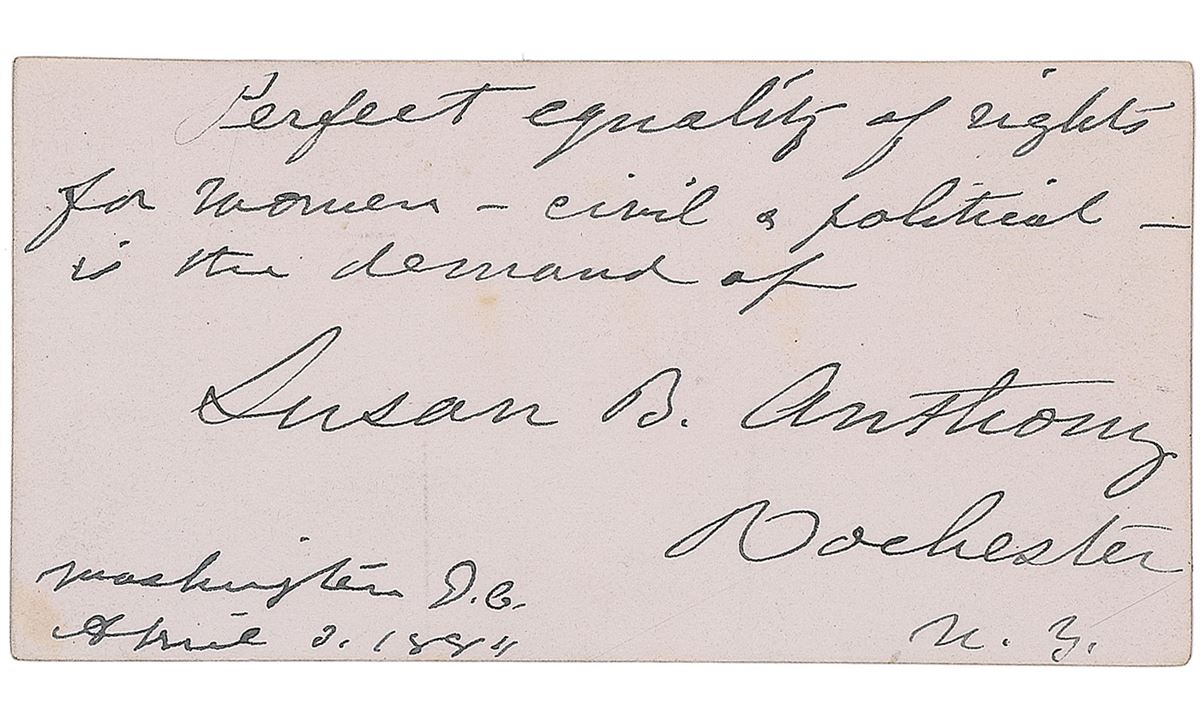 Perfect equality of rights
for women – civil & political –
is the demand of
Susan B. Anthony
Rochester
N. Y.
Washington D.C.
April 2.